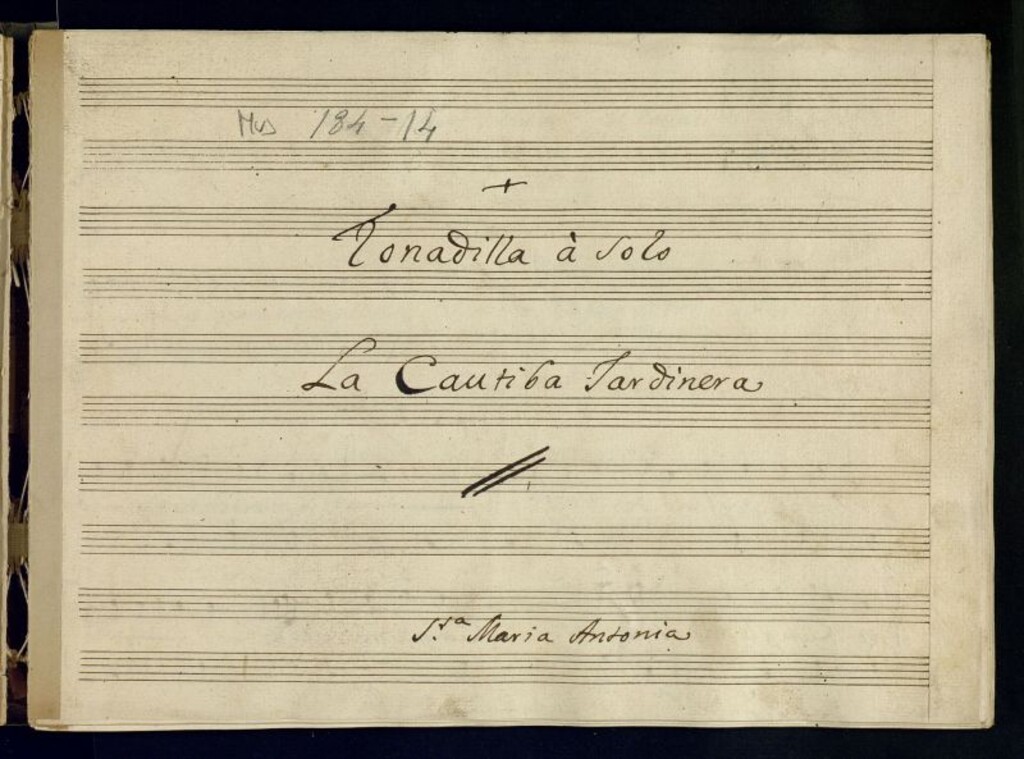 Mus 184-14
Tonadilla à solo
La Cautiba Jardinera
S.ra Maria Antonia